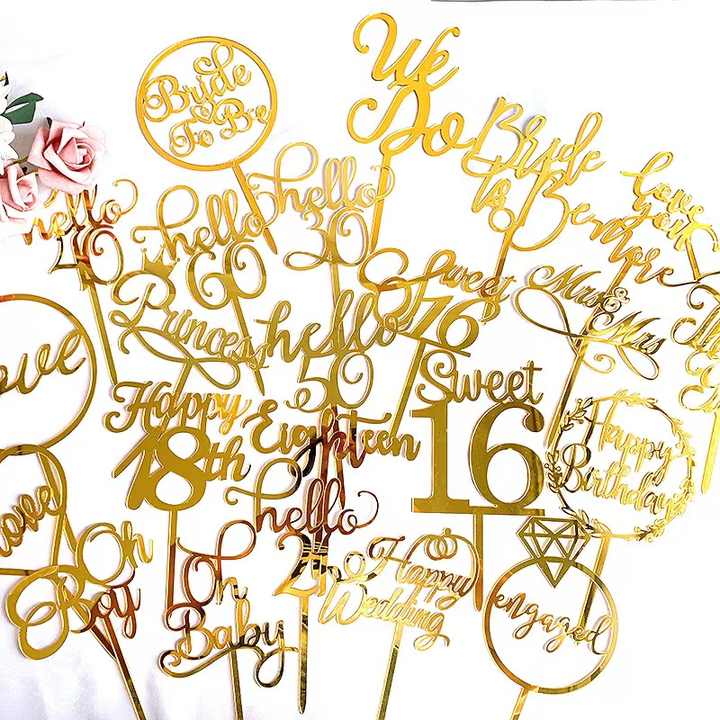 Bride
To Be
We
Do
Bride
to Be
Love
you
more
hello
40
hello
60
hello
30
Princess
hello
50
Sweet
16
Mrs &
Mrs
Love
Happy
18th
Eighteen
Sweet
16
Happy
Birthday
hello
Oh
Boy
Oh
Baby
Happy
Wedding
engaged